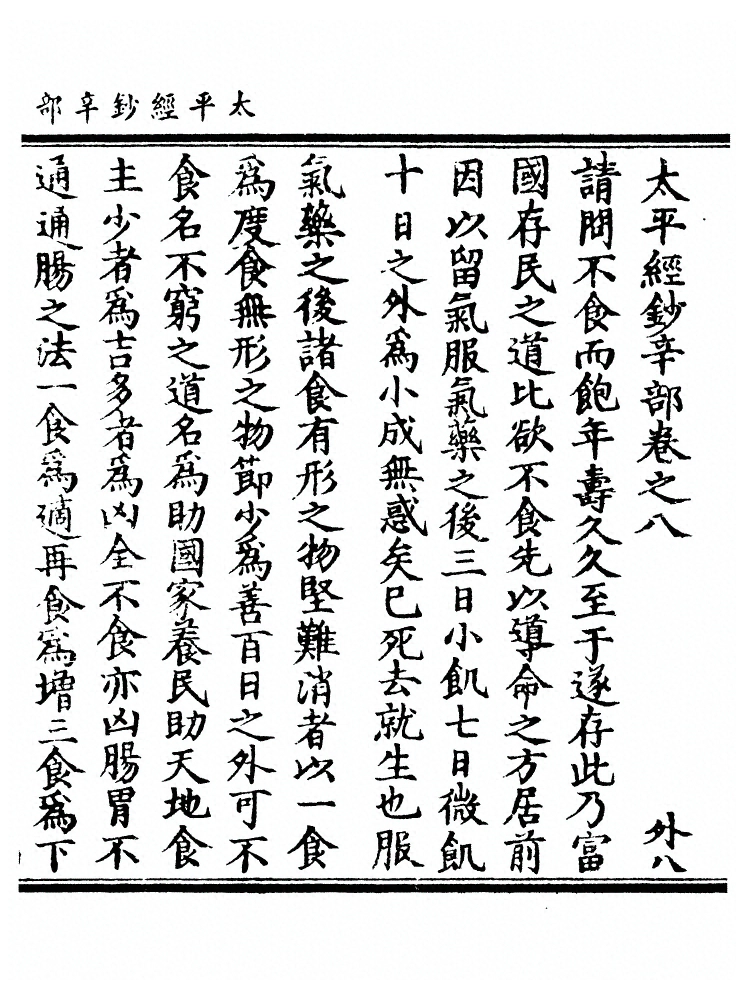 太平經鈔辛部
太平經鈔辛部卷之八　外八
請問不食而飽年壽久久至于遂存此乃富
國存民之道比欲不食先以導命之方居前
因以留氣服氣藥之後三日小飢七日微飢
十日之外為小成無惑矣已死去就生也服
氣藥之後諸食有形之物堅難消者以一食
為度食無形之物節少為善百日之外可不
食名不窮之道名為助國家養民助天地食
主少者為吉多者為凶全不食亦凶腸胃不
通通腸之法一食為適再食為增三食為下